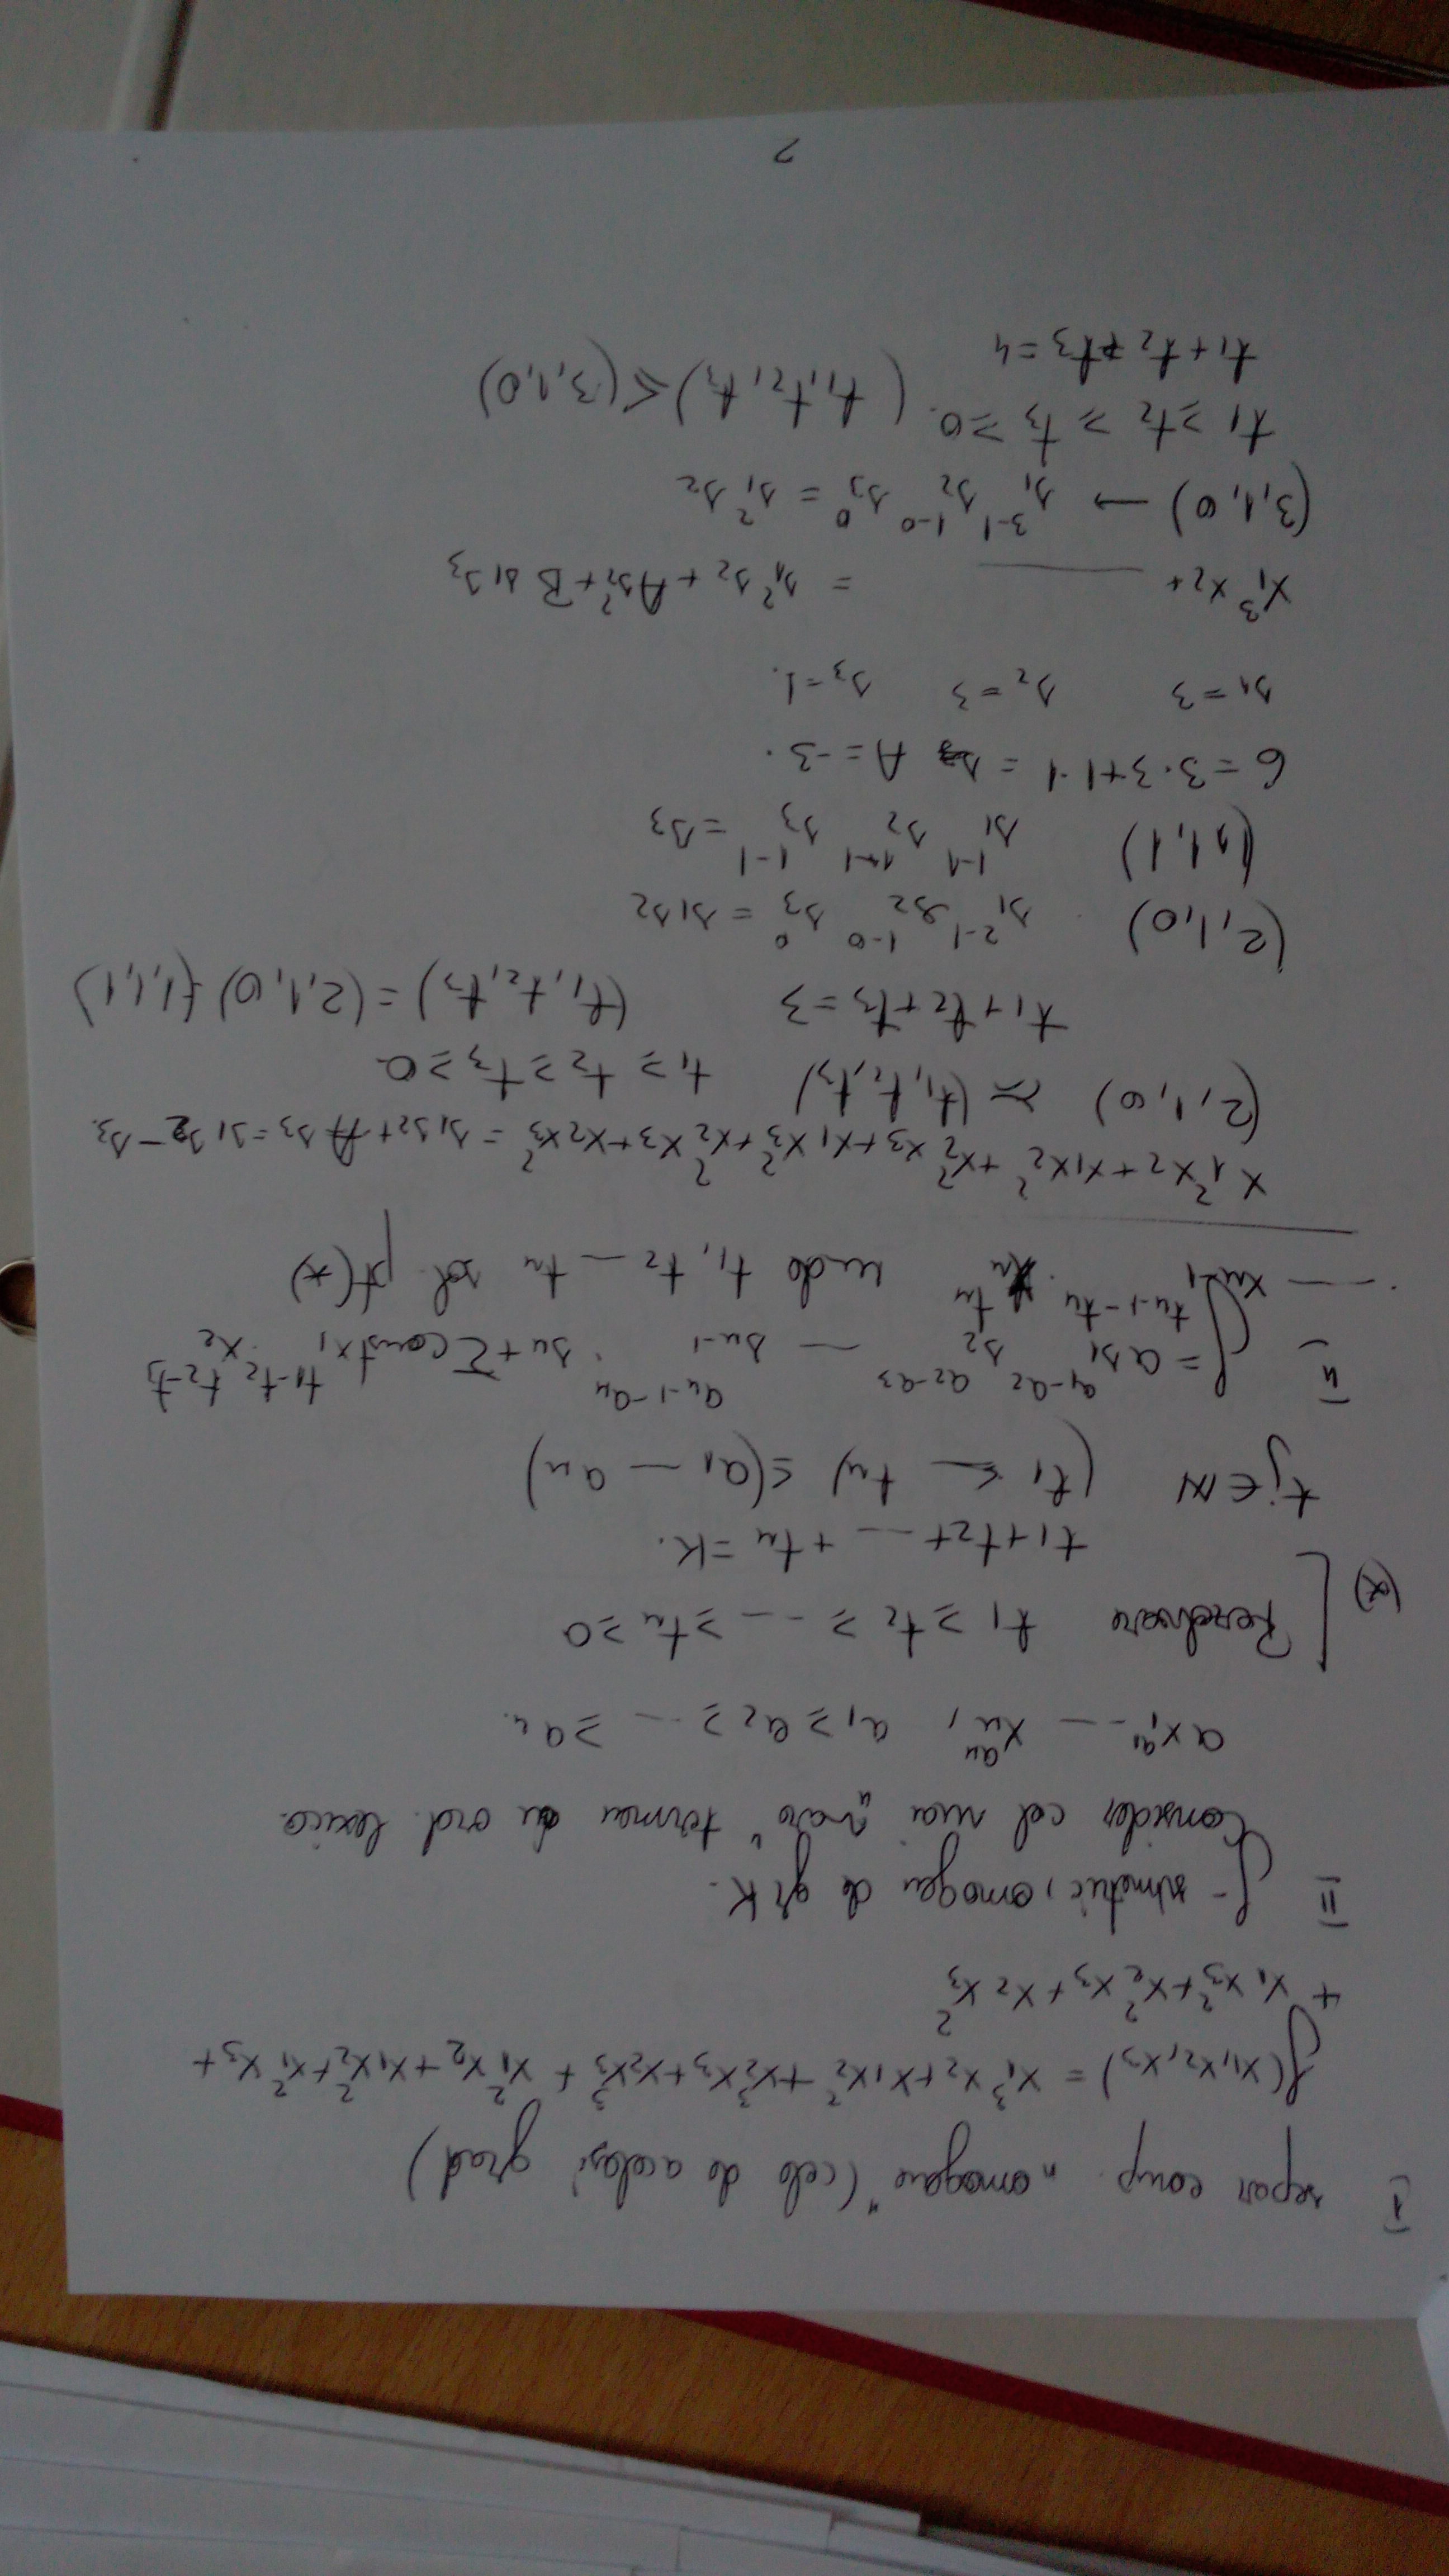 I separ comp. "omogene" (cele de același grad)
f(x₁,x₂,x₃) = x₁³x₂+x₁x₂³+x₂³x₃+x₂x₃³ + x₁²x₂+x₁x₂²+x₁²x₃+
+ x₁x₃²+x₂²x₃+x₂x₃²
II f - simetric, omogen de gr K.
Consider cel mai "mare" termen în ord. lexico.
ax₁^{a₁} --- xₙ^{aₙ}, a₁ ≥ a₂ ≥ --- ≥ aₙ.
(*) Rezolvare t₁ ≥ t₂ ≥ --- ≥ tₙ ≥ 0
t₁+t₂+ --- + tₙ = K.
tⱼ ∈ ℕ (t₁ --- tₙ) ≤ (a₁ --- aₙ)
III f = a s₁^{a₁-a₂} s₂^{a₂-a₃} --- sₙ₋₁^{aₙ₋₁-aₙ} sₙ + Σ const x₁^{t₁-t₂} x₂^{t₂-t₃}
--- xₙ₋₁^{tₙ₋₁-tₙ} xₙ^{tₙ} unde t₁, t₂ --- tₙ sol. pt (*)
x₁²x₂+x₁x₂²+x₁²x₃+x₁x₃²+x₂²x₃+x₂x₃² = s₁s₂+As₃ = s₁s₂-s₃.
(2,1,0) ≥ (t₁,t₂,t₃) t₁ ≥ t₂ ≥ t₃ ≥ 0
t₁+t₂+t₃ = 3 (t₁,t₂,t₃) = (2,1,0) (1,1,1)
(2,1,0) s₁^{2-1} s₂^{1-0} s₃^0 = s₁s₂
(1,1,1) s₁^{1-1} s₂^{1-1} s₃^{1-1} = s₃
6 = 3·3+1·1 = A = -3.
s₁ = 3 s₂ = 3 s₃ = 1.
x₁³x₂+ --- = s₁²s₂ + As₂² + Bs₁s₃
(3,1,0) → s₁^{3-1} s₂^{1-0} s₃^0 = s₁²s₂
t₁ ≥ t₂ ≥ t₃ ≥ 0. (t₁,t₂,t₃) ≤ (3,1,0)
t₁+t₂+t₃ = 4
2